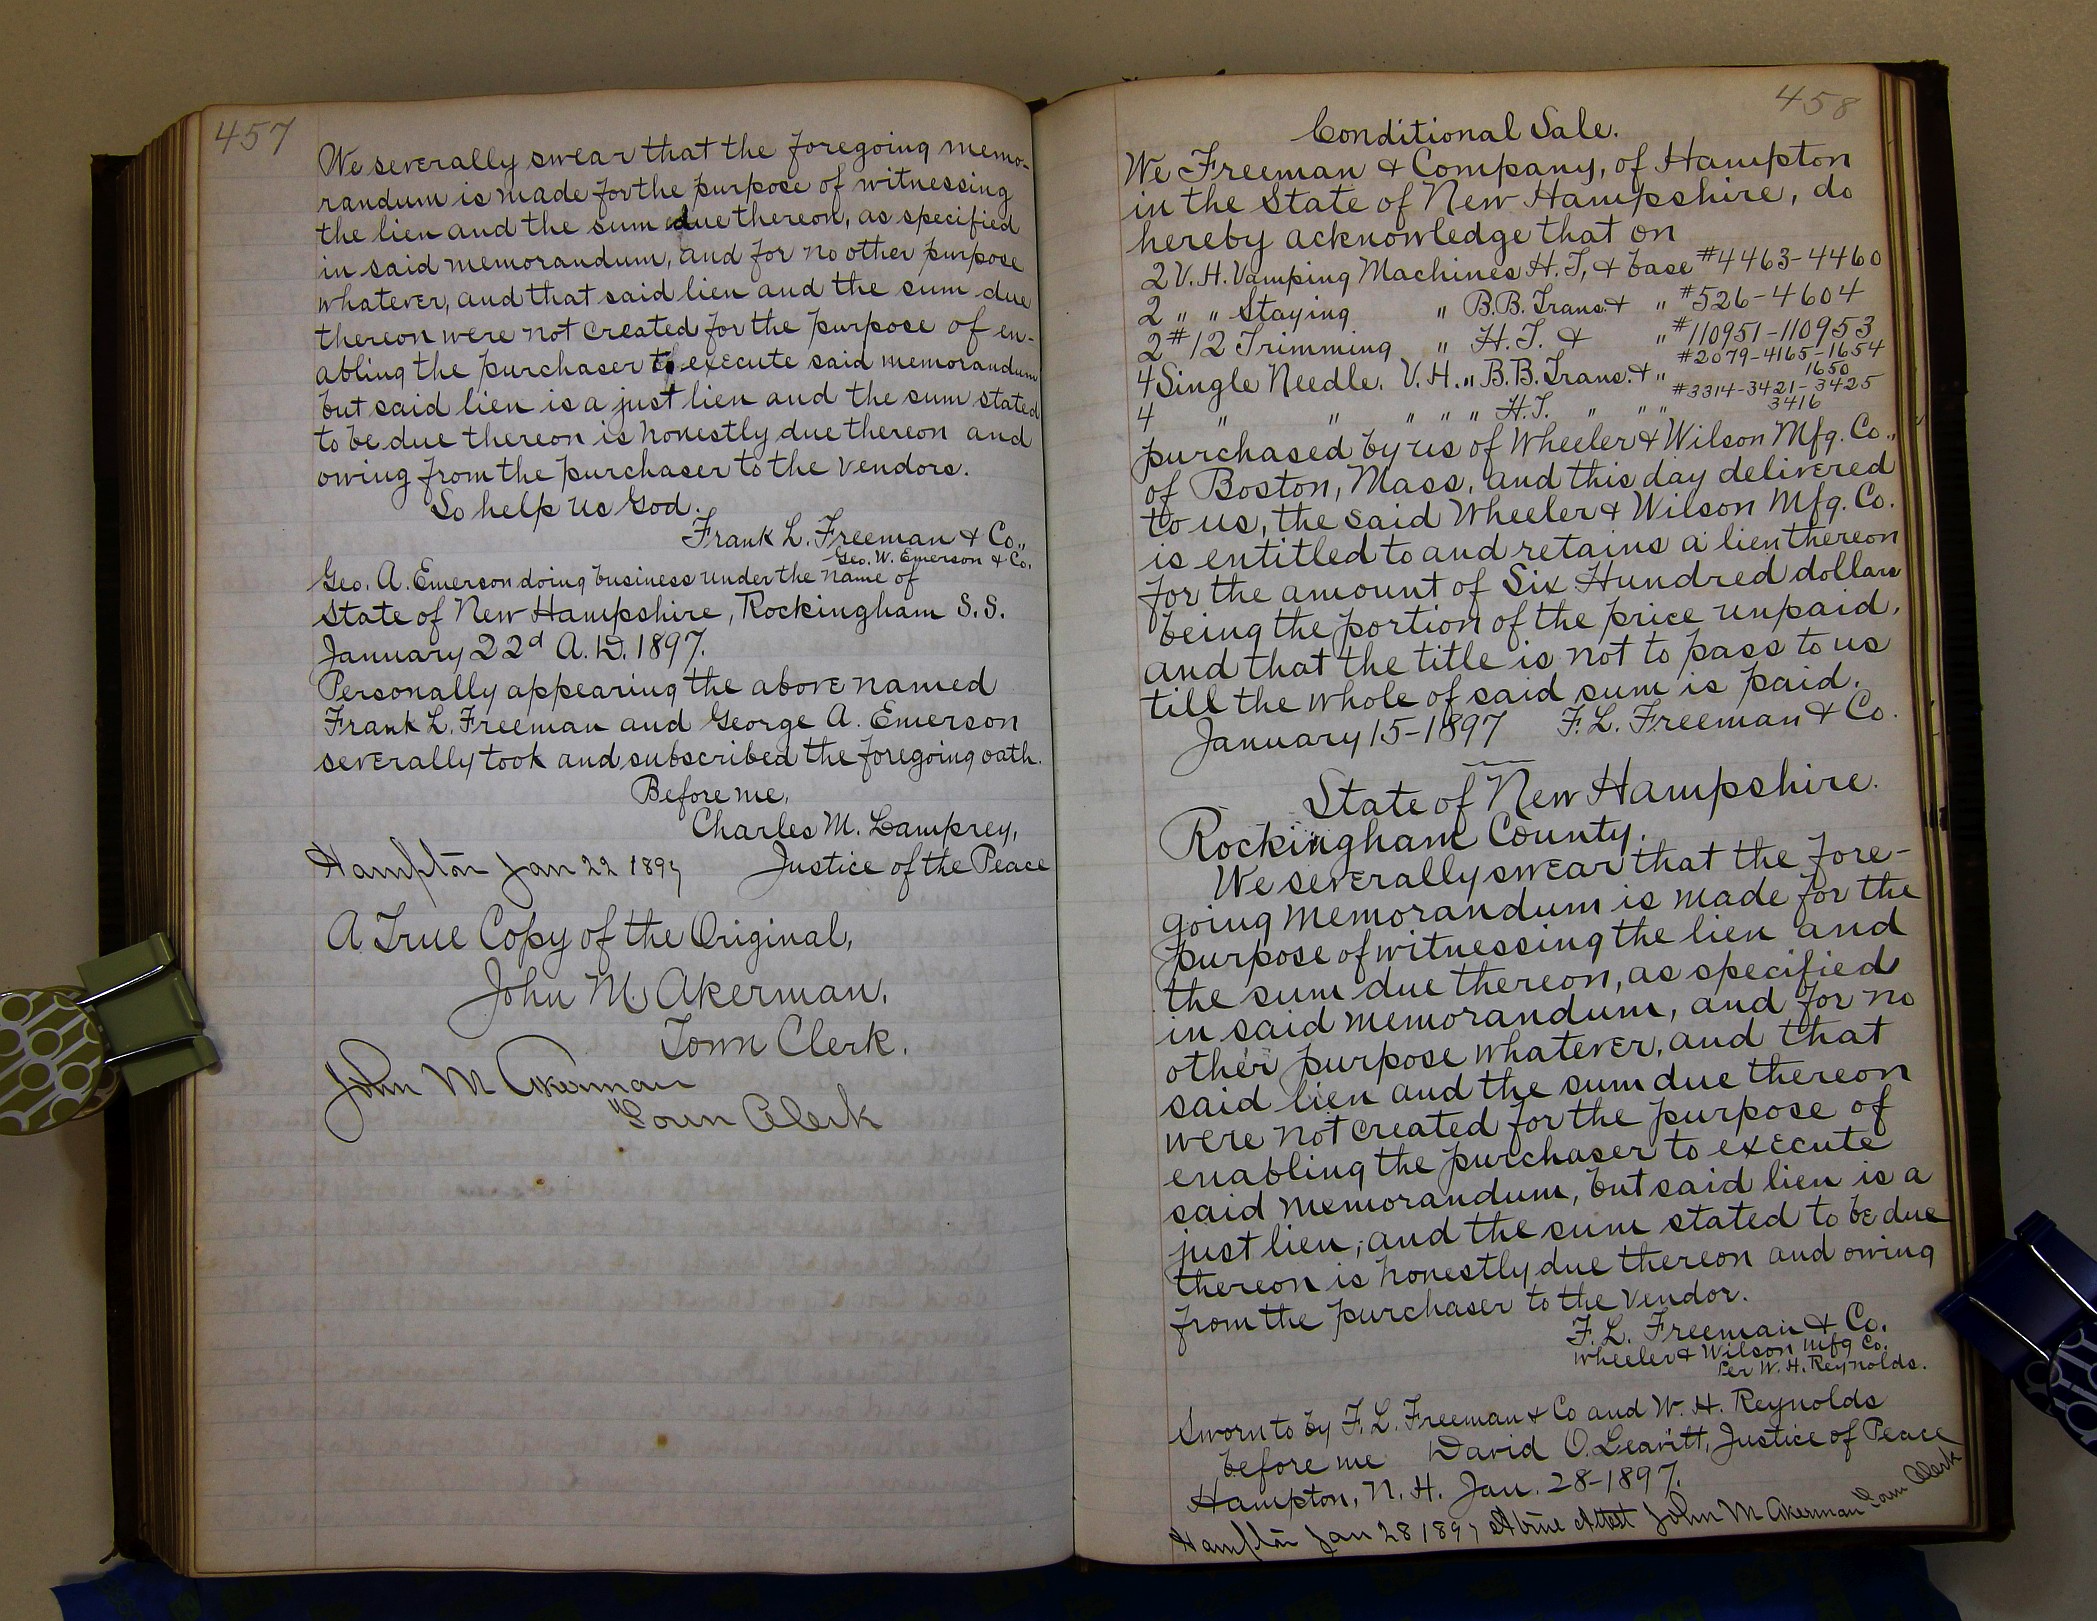 457
We severally swear that the foregoing memo-
randum is made for the purpose of witnessing
the lien and the sum due thereon, as specified
in said memorandum, and for no other purpose
whatever, and that said lien and the sum due
thereon were not created for the purpose of en-
abling the purchaser to execute said memorandum
but said lien is a just lien and the sum stated
to be due thereon is honestly due thereon and
owing from the purchaser to the vendors.
So help us God.
Frank L. Freeman & Co.,
Geo. W. Emerson & Co.
Geo. A. Emerson doing business under the name of
State of New Hampshire, Rockingham S.S.
January 22d A.D. 1897.
Personally appearing the above named
Frank L. Freeman and George A. Emerson
severally took and subscribed the foregoing oath.
Before me,
Charles M. Lamprey,
Hampton Jan 22 1897 Justice of the Peace
A True Copy of the Original,
John M. Akerman,
Town Clerk.
John M Akerman
Town Clerk
458
Conditional Sale.
We Freeman & Company, of Hampton
in the State of New Hampshire, do
hereby acknowledge that on
2 V. H. Vamping Machines H. T, & base #4463-4460
2 " " Staying " B.B. Trans. & " #526-4604
2 #12 Trimming " H. T. & " #110951-110953
4 Single Needle. V. H. " B.B. Trans. & " #2079-4165-1654
1650
4 " " " " " H.T. " " " #3314-3421-3425
3416
purchased by us of Wheeler & Wilson Mfg. Co.,
of Boston, Mass, and this day delivered
to us, the said Wheeler & Wilson Mfg. Co.
is entitled to and retains a lien thereon
for the amount of Six Hundred dollars
being the portion of the price unpaid,
and that the title is not to pass to us
till the whole of said sum is paid.
January 15-1897 F. L. Freeman & Co.
State of New Hampshire.
Rockingham County.
We severally swear that the fore-
going memorandum is made for the
purpose of witnessing the lien and
the sum due thereon, as specified
in said memorandum, and for no
other purpose whatever, and that
said lien and the sum due thereon
were not created for the purpose of
enabling the purchaser to execute
said memorandum, but said lien is a
just lien, and the sum stated to be due
thereon is honestly due thereon and owing
from the purchaser to the vendor.
F. L. Freeman & Co.
Wheeler & Wilson Mfg Co.
Per W. H. Reynolds.
Sworn to by F. L. Freeman & Co and W. H. Reynolds
before me David O. Leavitt, Justice of Peace
Hampton, N. H. Jan. 28-1897.
Hampton Jan 28 1897 A true Attest John M Akerman Town Clerk